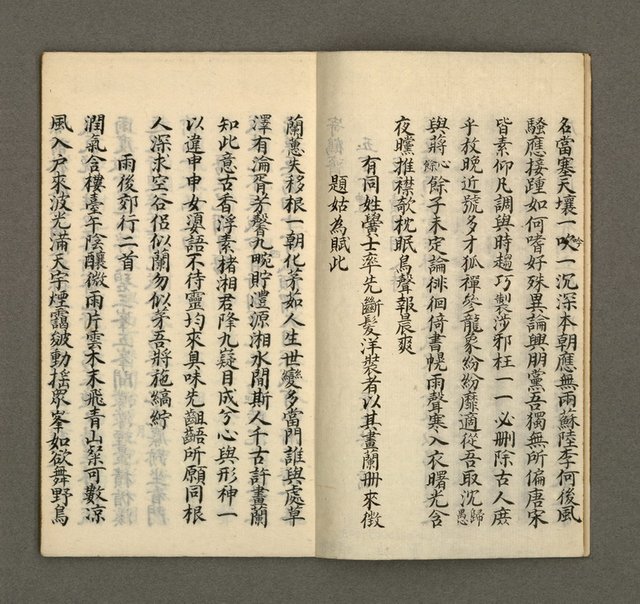 名當塞天壤一吟一沉深本朝應無兩蘇陸李何後風
騷應接踵如何嗜好殊異論興朋黨吾獨無所偏唐宋
皆素仰凡調與時趨巧製涉邪枉一一必删除古人庶
乎枚晚近號多才狐禪參龍象紛紛靡適從吾取沈歸愚
與蔣心餘餘子未定論徘徊倚書幌雨聲寒入衣曙光含
夜矘推襟欹枕眠鳥聲報晨爽
有同姓黌士率先斷髮洋裝者以其畫蘭册來徵
題姑為賦此
蘭蕙失移根一朝化茅如人生世變多當門誰與處草
澤有淪胥芳馨九畹貯澧源湘水間斯人千古許畫蘭
知此意古香浮素楮湘君降九嶷目成兮心與形神一
以違申申女嬃語不待靈均來臭味先齟齬所願同根
人深求空谷侶似蘭勿似茅吾將施縞紵
雨後郊行二首
潤氣含樓臺午陰釀微雨片雲木末飛青山粲可數涼
風入户來波光滿天宇煙靄皴動搖眾峯如欲舞野鳥